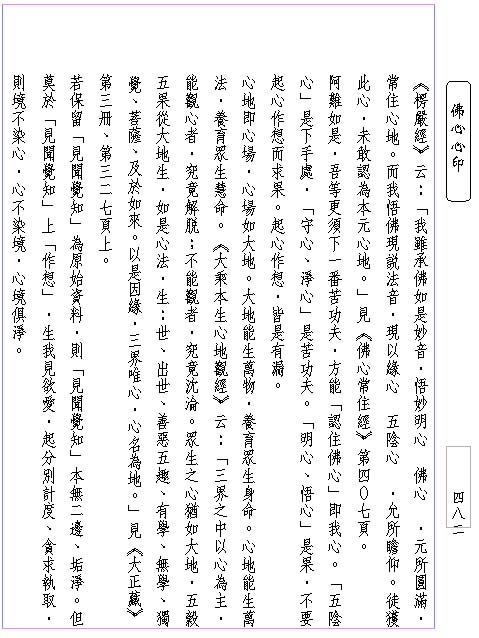 佛心心印
《楞嚴經》云：「我雖承佛如是妙音，悟妙明心　佛心　，元所圓滿，
常住心地。而我悟佛現說法音，現以緣心　五陰心　，允所瞻仰。徒獲
此心，未敢認為本元心地。」見《佛心常住經》第四０七頁。
阿難如是，吾等更須下一番苦功夫，方能「認住佛心」即我心。「五陰
心」是下手處，「守心、淨心」是苦功夫。「明心、悟心」是果，不要
起心作想而求果。起心作想，皆是有漏。
心地即心場，心場如大地。大地能生萬物，養育眾生身命。心地能生萬
法，養育眾生慧命。《大乘本生心地觀經》云：「三界之中以心為主，
能觀心者，究竟解脫；不能觀者，究竟沈淪。眾生之心猶如大地，五穀
五果從大地生，如是心法，生：世、出世、善惡五趣、有學、無學、獨
覺、菩薩、及於如來。以是因緣，三界唯心，心名為地。」見《大正藏》
第三冊、第三二七頁上。
若保留「見聞覺知」為原始資料，則「見聞覺知」本無二邊、垢淨。但
莫於「見聞覺知」上「作想」，生我見欲愛，起分別計度、貪求執取，
則境不染心，心不染境，心境俱淨。
四八二